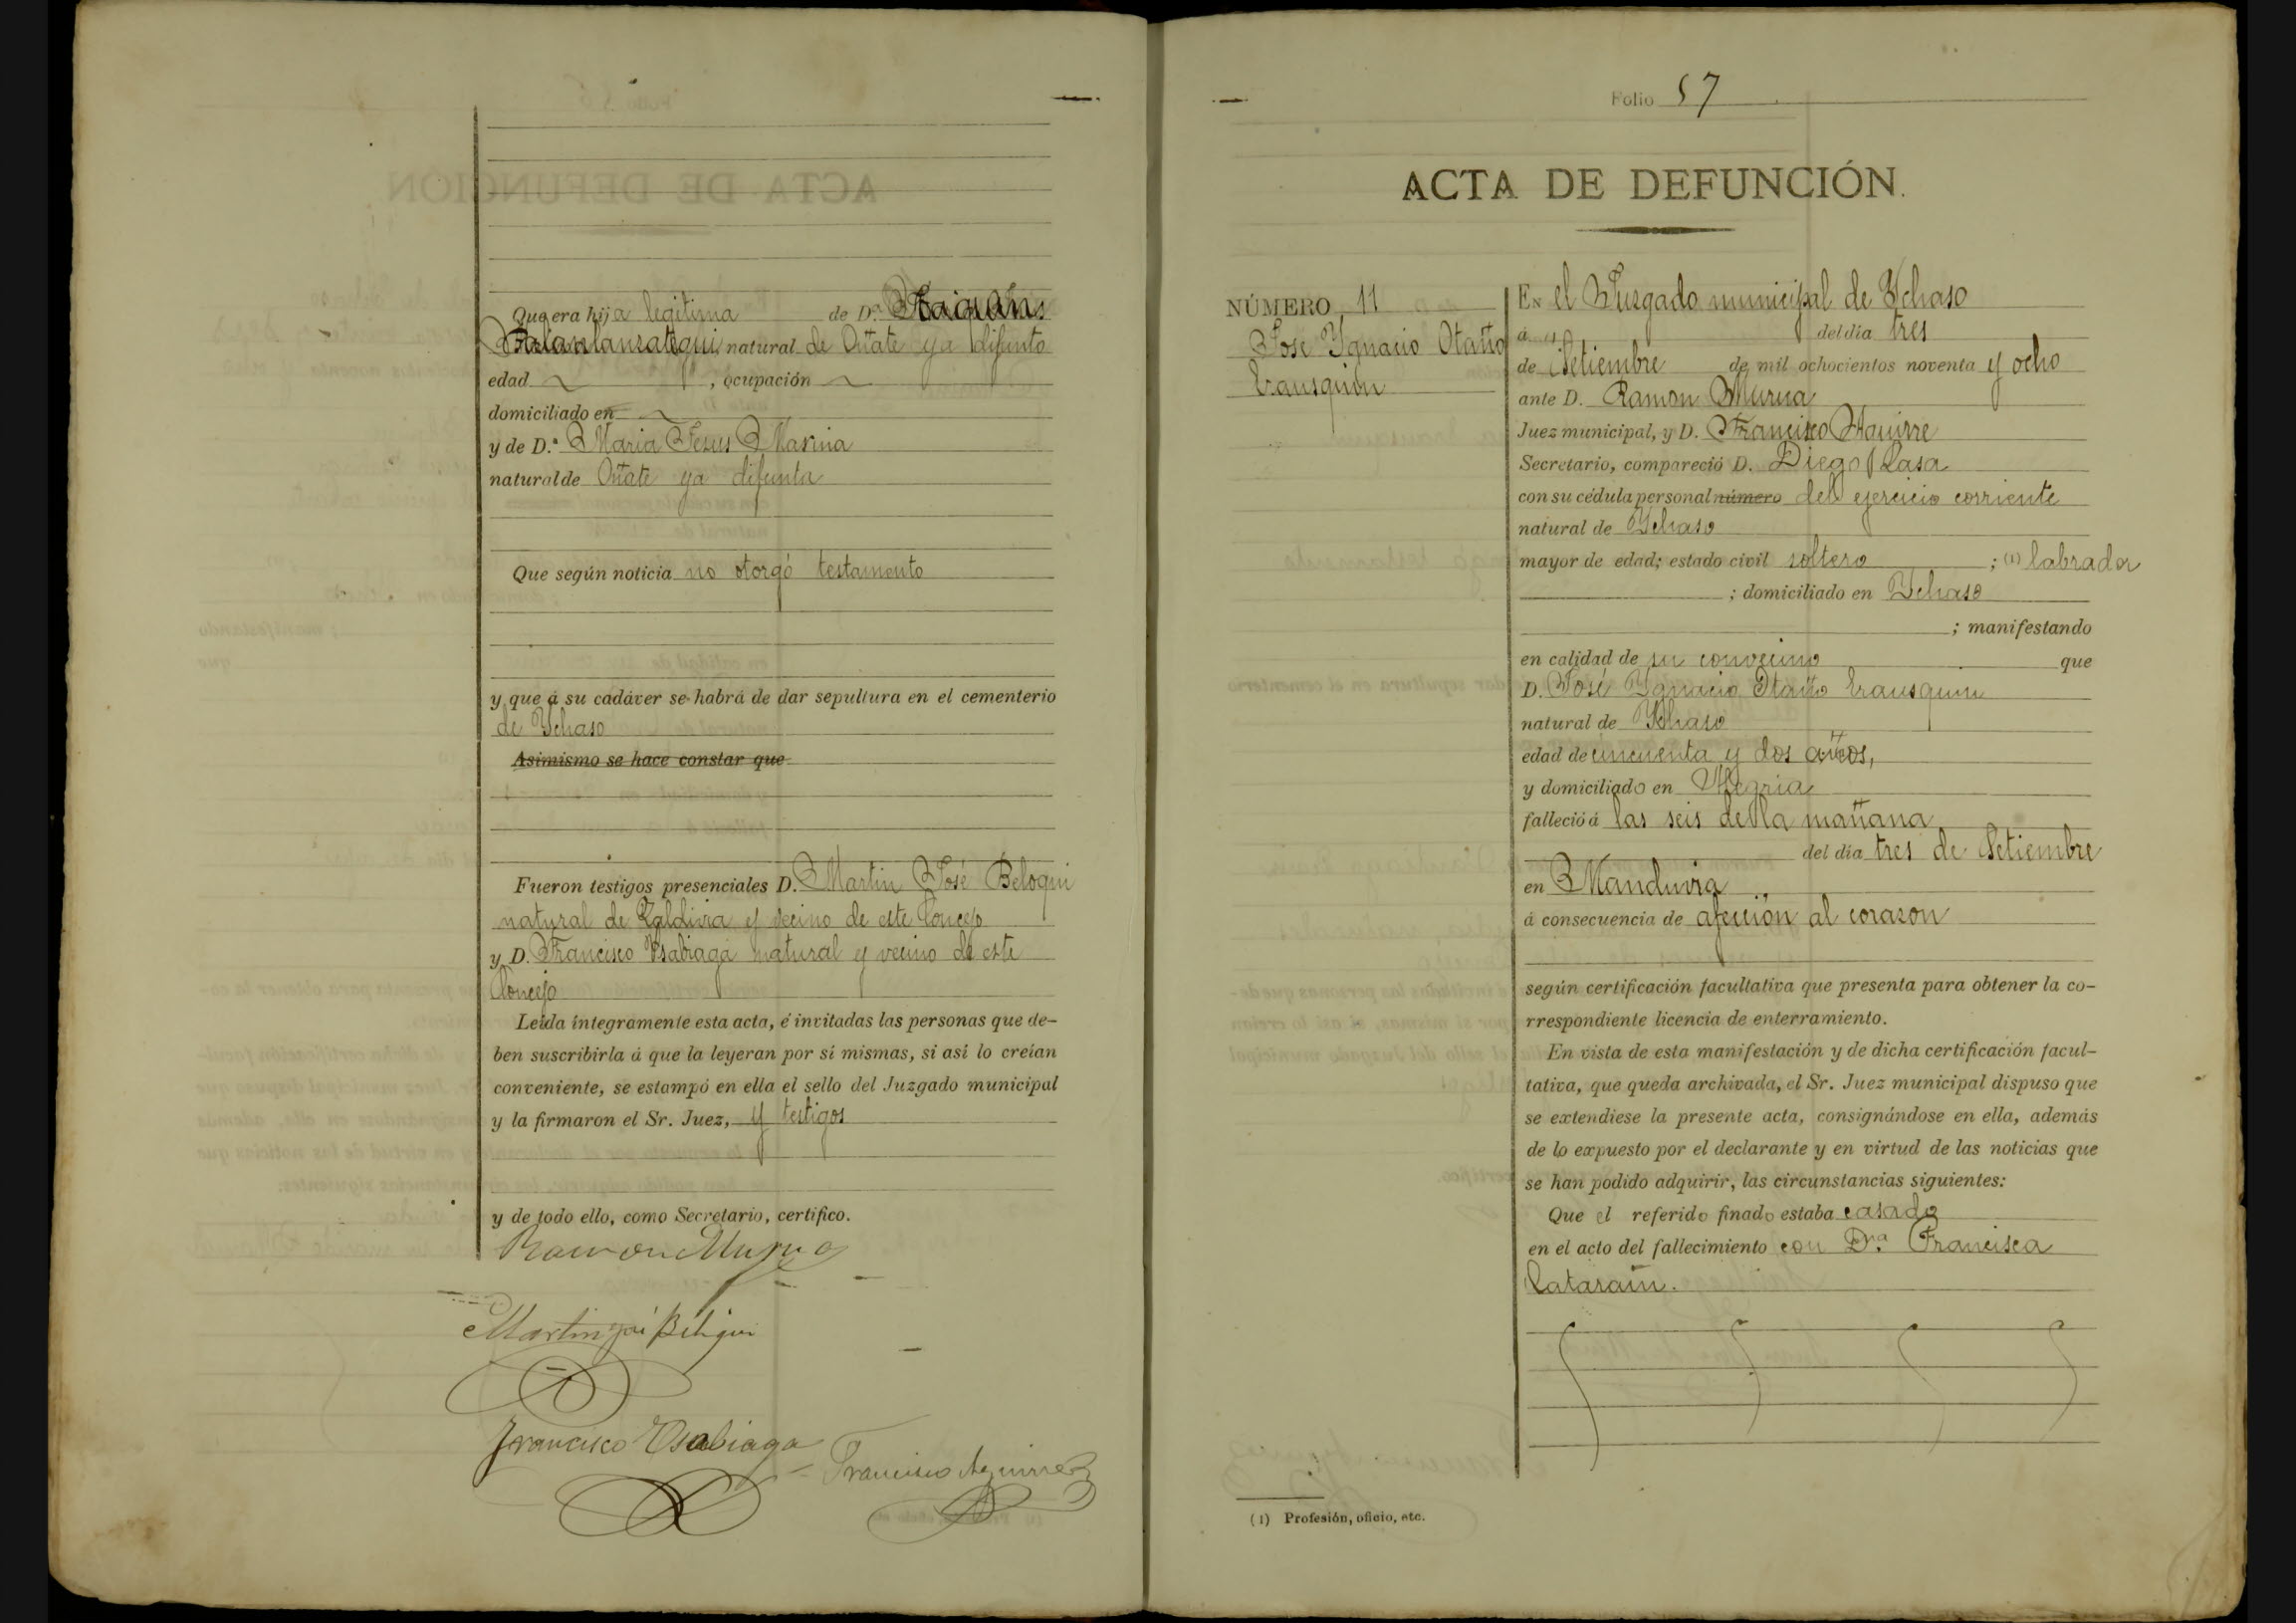 Que era hija legitima de D.ⁿ Joaquin
natural de Oñate ya difunto
edad , ocupación
domiciliado en
y de D.ª Maria Jesus Marina
natural de Oñate ya difunta
Que según noticia no otorgó testamento
y que á su cadáver se habrá de dar sepultura en el cementerio
de Ychaso
Asimismo se hace constar que
Fueron testigos presenciales D. Martin José Beloqui
natural de Zaldivia y vecino de este Concejo
y D. Francisco Ysabiaga natural y vecino de este
Concejo
Leída íntegramente esta acta, é invitadas las personas que de-
ben suscribirla á que la leyeran por sí mismas, si así lo creían
conveniente, se estampó en ella el sello del Juzgado municipal
y la firmaron el Sr. Juez, y testigos
y de todo ello, como Secretario, certifico.
Ramon Murua
Martin José Beloqui
Francisco Ysabiaga
Francisco Aguirre
Folio 57
ACTA DE DEFUNCIÓN.
NÚMERO 11
Jose Ygnacio Otaño
Yrausquin
En el Juzgado municipal de Ychaso
á del día tres
de Setiembre de mil ochocientos noventa y ocho
ante D. Ramon Murua
Juez municipal, y D. Francisco Aguirre
Secretario, compareció D. Diego Lasa
con su cédula personal número del ejercicio corriente
natural de Ychaso
mayor de edad; estado civil soltero ; (1) labrador
; domiciliado en Ychaso
; manifestando
en calidad de su convecino que
D. José Ygnacio Otaño Yrausquin
natural de Ychaso
edad de cincuenta y dos años,
y domiciliado en Alegria
falleció á las seis de la mañana
del día tres de Setiembre
en Manduvia
á consecuencia de afección al corazon
según certificación facultativa que presenta para obtener la co-
rrespondiente licencia de enterramiento.
En vista de esta manifestación y de dicha certificación facul-
tativa, que queda archivada, el Sr. Juez municipal dispuso que
se extendiese la presente acta, consignándose en ella, además
de lo expuesto por el declarante y en virtud de las noticias que
se han podido adquirir, las circunstancias siguientes:
Que el referido finado estaba casado
en el acto del fallecimiento con D.ña Francisca
Lataraín.
(1) Profesión, oficio, etc.